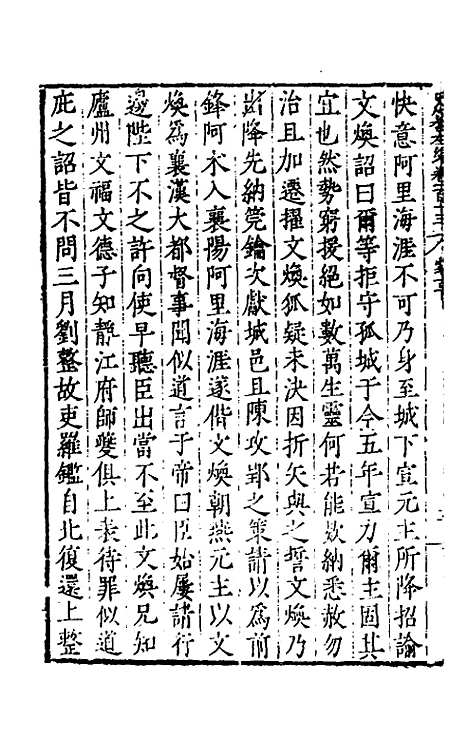 快意阿里海涯不可乃身至城下宣元主所降招諭
文煥詔曰爾等拒守孤城于今五年宣力爾主固其
宜也然勢窮援絕如數萬生靈何若能欵納悉赦勿
治且加遷擢文煥狐疑未決因折矢與之誓文煥乃
出降先納筦鑰次獻城邑且陳攻郢之策請以爲前
鋒阿朮入襄陽阿里海涯遂偕文煥朝燕元主以文
煥爲襄漢大都督事聞似道言于帝曰臣始屢請行
邊陛下不之許向使早聽臣出當不至此文煥兄知
廬州文福文德子知靜江府師夔俱上表待罪似道
庇之詔皆不問三月劉整故吏羅鑑自北復還上整